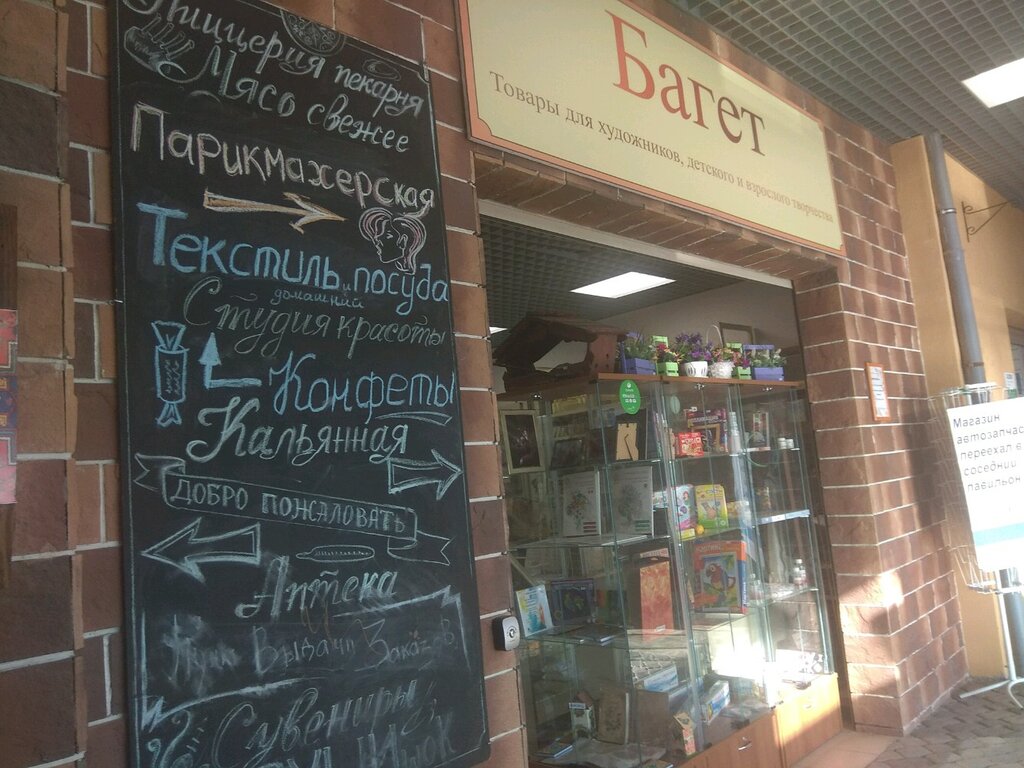 Пиццерия пекарня
Мясо свежее
Парикмахерская
Текстиль и посуда
домашний
Студия красоты
Конфеты
Кальянная
ДОБРО ПОЖАЛОВАТЬ
Аптека
Пункт Выдачи Заказов
Сувениры
Багет
Товары для художников, детского и взрослого творчества
Магазин
автозапчас
переехал в
соседний
павильон